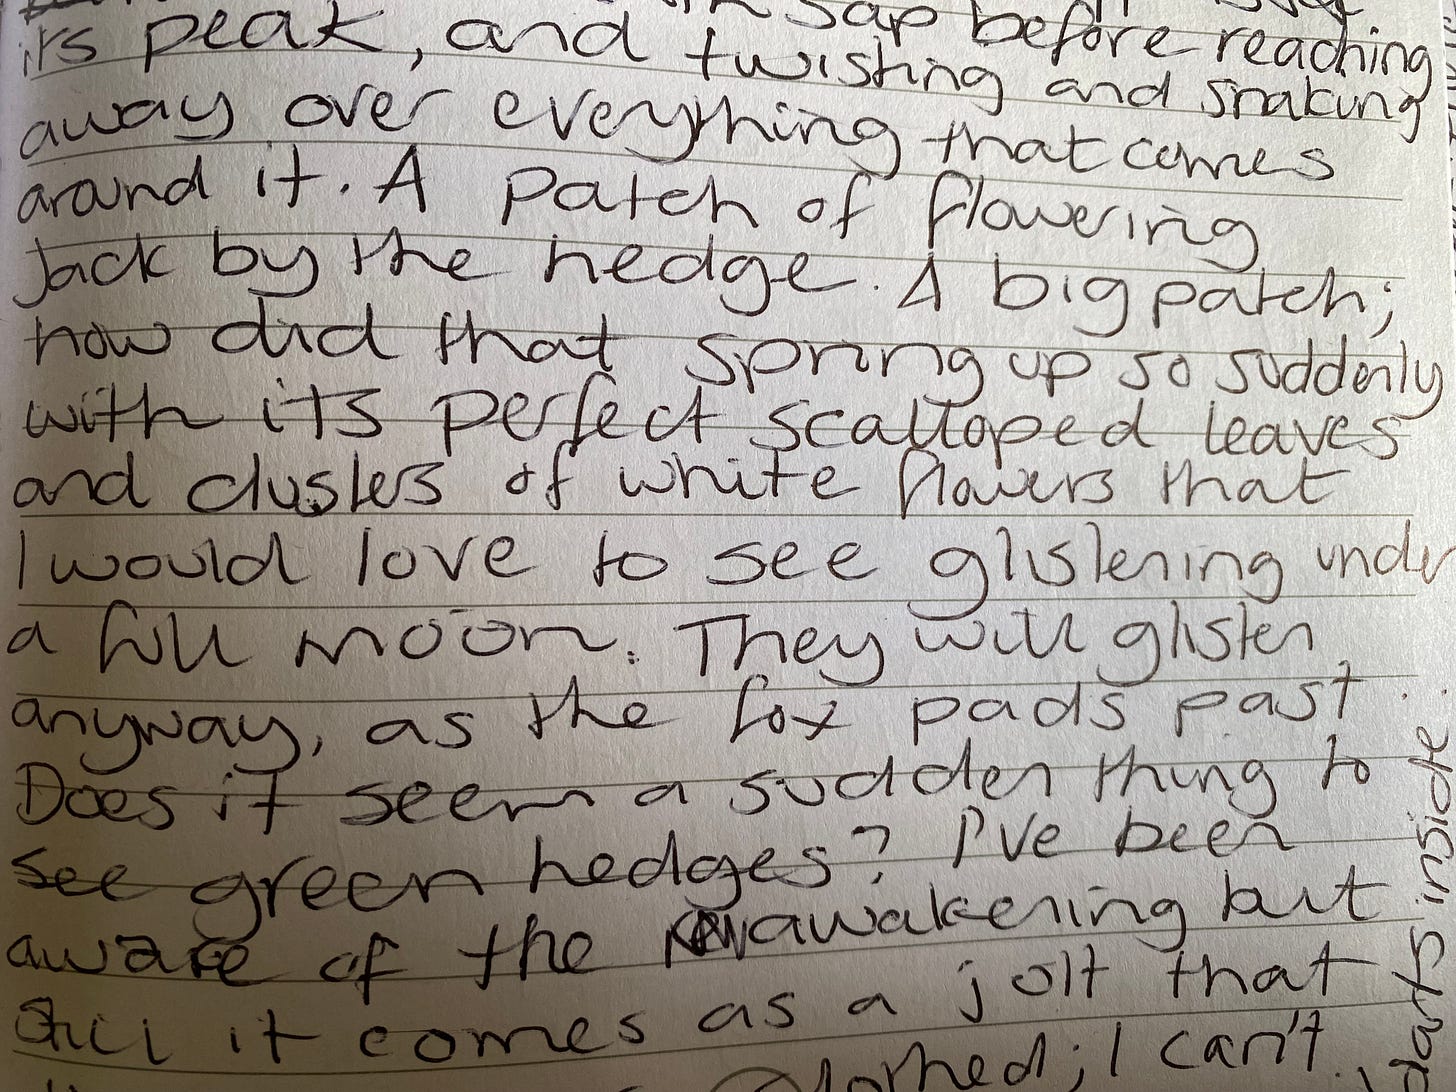 sap before reaching
its peak, and twisting and snaking
away over everything that comes
around it. A patch of flowering
Jack by the hedge. A big patch;
how did that spring up so suddenly
with its perfect scalloped leaves
and clusters of white flowers that
I would love to see glistening under
a full moon. They will glisten
anyway, as the fox pads past.
Does it seem a sudden thing to
see green hedges? I've been
aware of the awakening but
still it comes as a jolt that
; I can't
darts inside